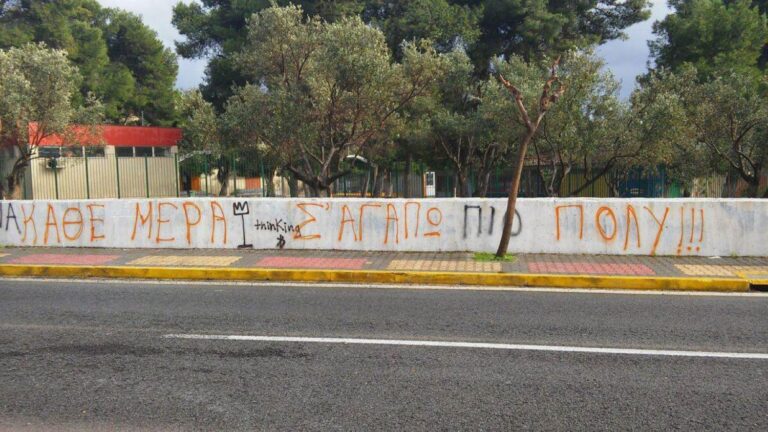 ΚΑΘΕ ΜΕΡΑ thinking Σ'ΑΓΑΠΩ ΠΙΟ ΠΟΛΥ!!!